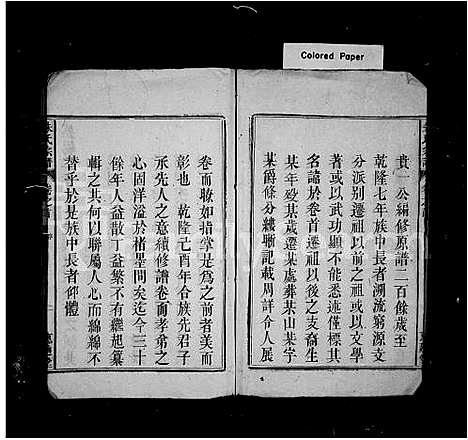 Colored Paper
貴一公編修原譜二百餘歲至
乾隆七年族中長者溯流窮源支
分派別遷祖以後或以文學
著或以武功顯不能悉述僅標其
名諱於卷首遷祖以後之支裔生
某年歿某歲遷某處葬某山某字
某爵條分縷晰記載周詳令人展
卷而瞭如指掌是為之前者美而
彰也 乾隆己酉年合族先君子
承先人之意續修譜卷而孝弟之
心固洋溢於楮墨間矣迄今三十
餘年人益散丁益繁不有繼起纂
輯之其何以聯屬人心而綿綿不
替乎於是族中長者仰體